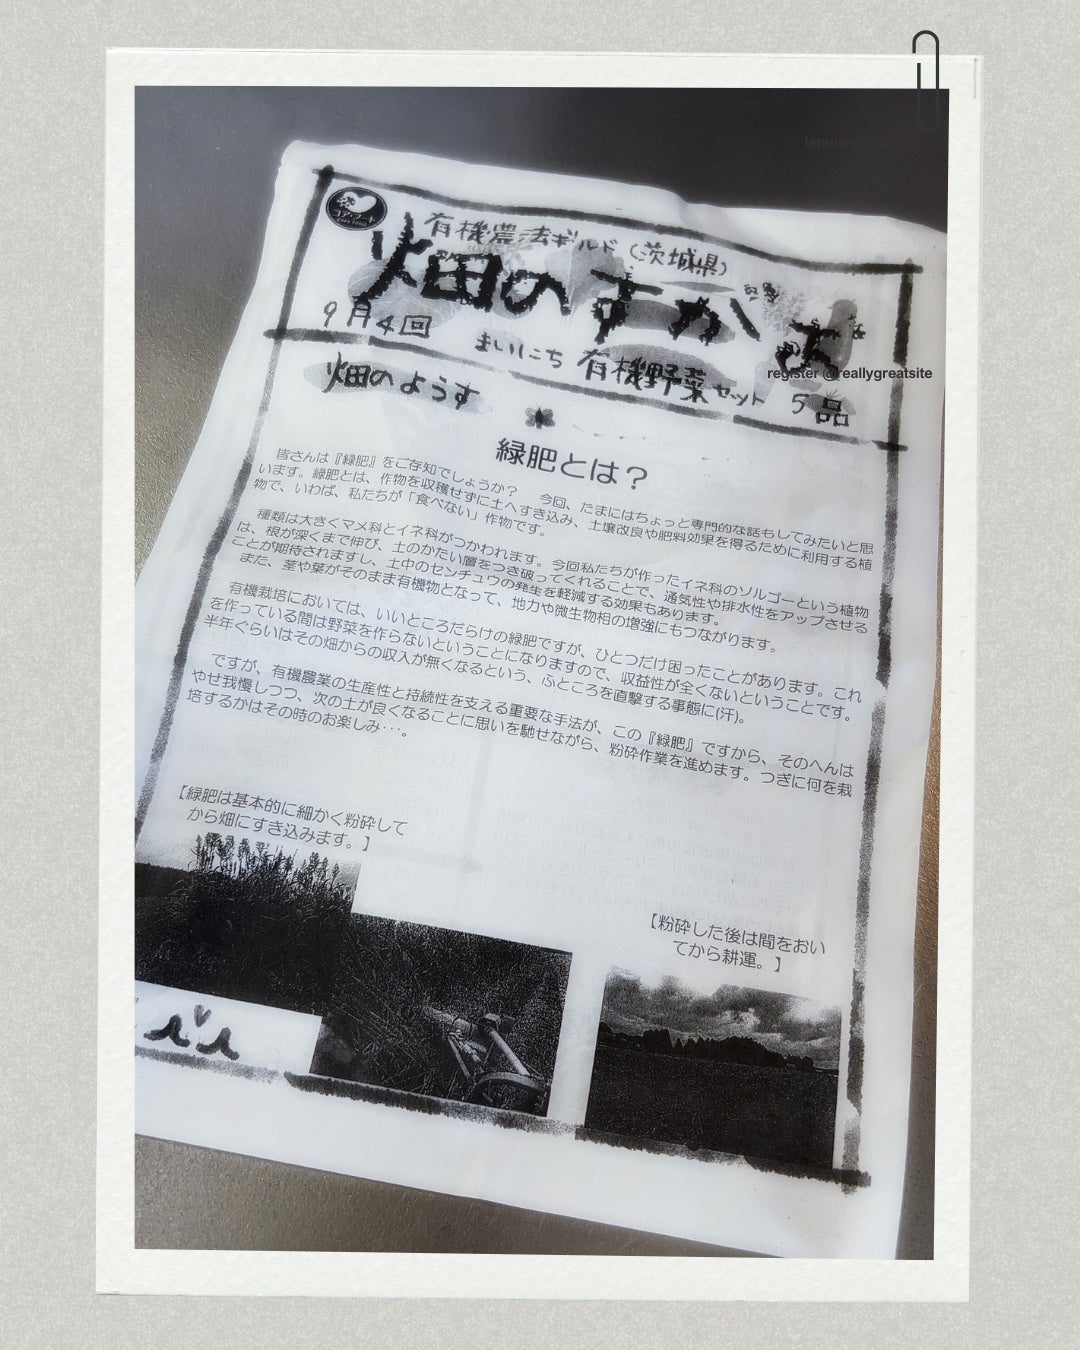 larana
コア・フード
Core Food
有機農法ギルド(茨城県)
畑のすがお
9月4回
まいにち 有機野菜セット 5品
register @reallygreatsite
畑のようす
緑肥とは?
皆さんは『緑肥』をご存知でしょうか? 今回、たまにはちょっと専門的な話もしてみたいと思
います。緑肥とは、作物を収穫せずに土へすき込み、土壌改良や肥料効果を得るために利用する植
物で、いわば、私たちが「食べない」作物です。
種類は大きくマメ科とイネ科がつかわれます。今回私たちが作ったイネ科のソルゴーという植物
は、根が深くまで伸び、土のかたい層をつき破ってくれることで、通気性や排水性をアップさせる
ことが期待されますし、土中のセンチュウの発生を軽減する効果もあります。
また、茎や葉がそのまま有機物となって、地力や微生物相の増強にもつながります。
有機栽培においては、いいところだらけの緑肥ですが、ひとつだけ困ったことがあります。これ
を作っている間は野菜を作らないということになりますので、収益性が全くないということです。
半年ぐらいはその畑からの収入が無くなるという、ふところを直撃する事態に(汗)。
ですが、有機農業の生産性と持続性を支える重要な手法が、この『緑肥』ですから、そのへんは
やせ我慢しつつ、次の土が良くなることに思いを馳せながら、粉砕作業を進めます。つぎに何を栽
培するかはその時のお楽しみ･･･。
【緑肥は基本的に細かく粉砕して
から畑にすき込みます。】
【粉砕した後は間をおい
てから耕運。】